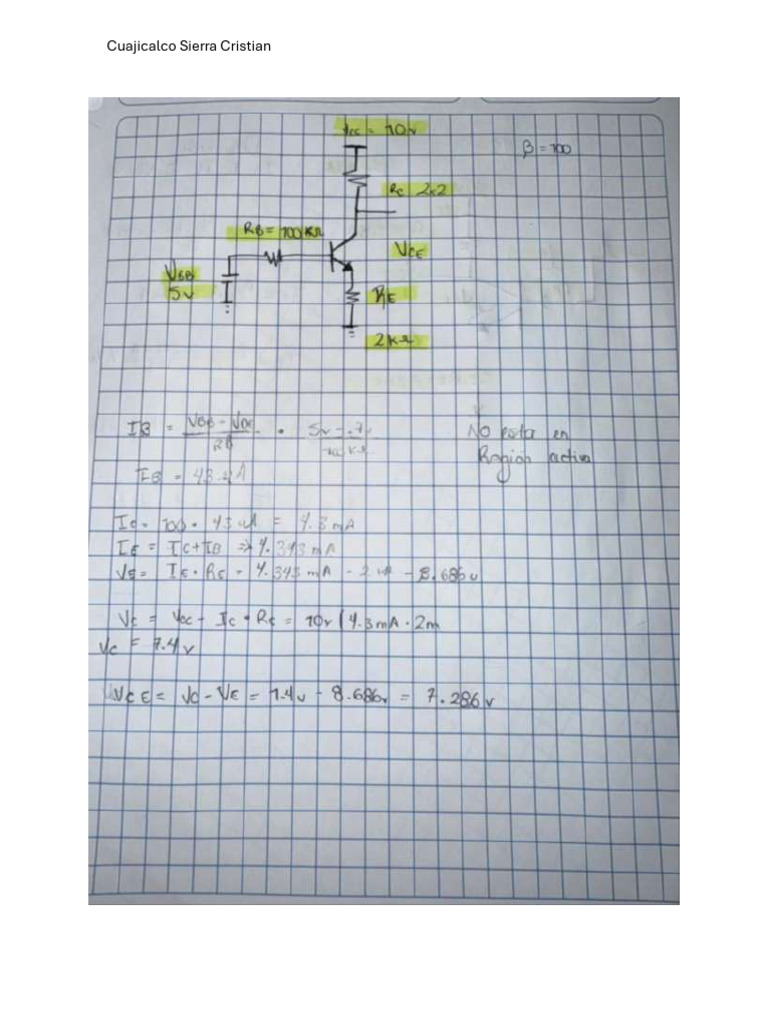 Cuajicalco Sierra Cristian
Vcc = 10v
β = 100
Rc 2k2
RB = 100KΩ
VCE
VBB
5v
RE
2KΩ
IB = VBB - VBE / RB = 5v - .7v / 100 KΩ
No esta en
Region activa
IB = 43 uA
IC = 100 · 43 uA = 4.3 mA
IE = IC + IB => 4.343 mA
VE = IE · RE = 4.343 mA - 2 - 8.686v
VC = VCC - IC · RC = 10v ( 4.3 mA · 2m
VC = 7.4 v
VCE = VC - VE = 1.4v - 8.686v = 7.286 v